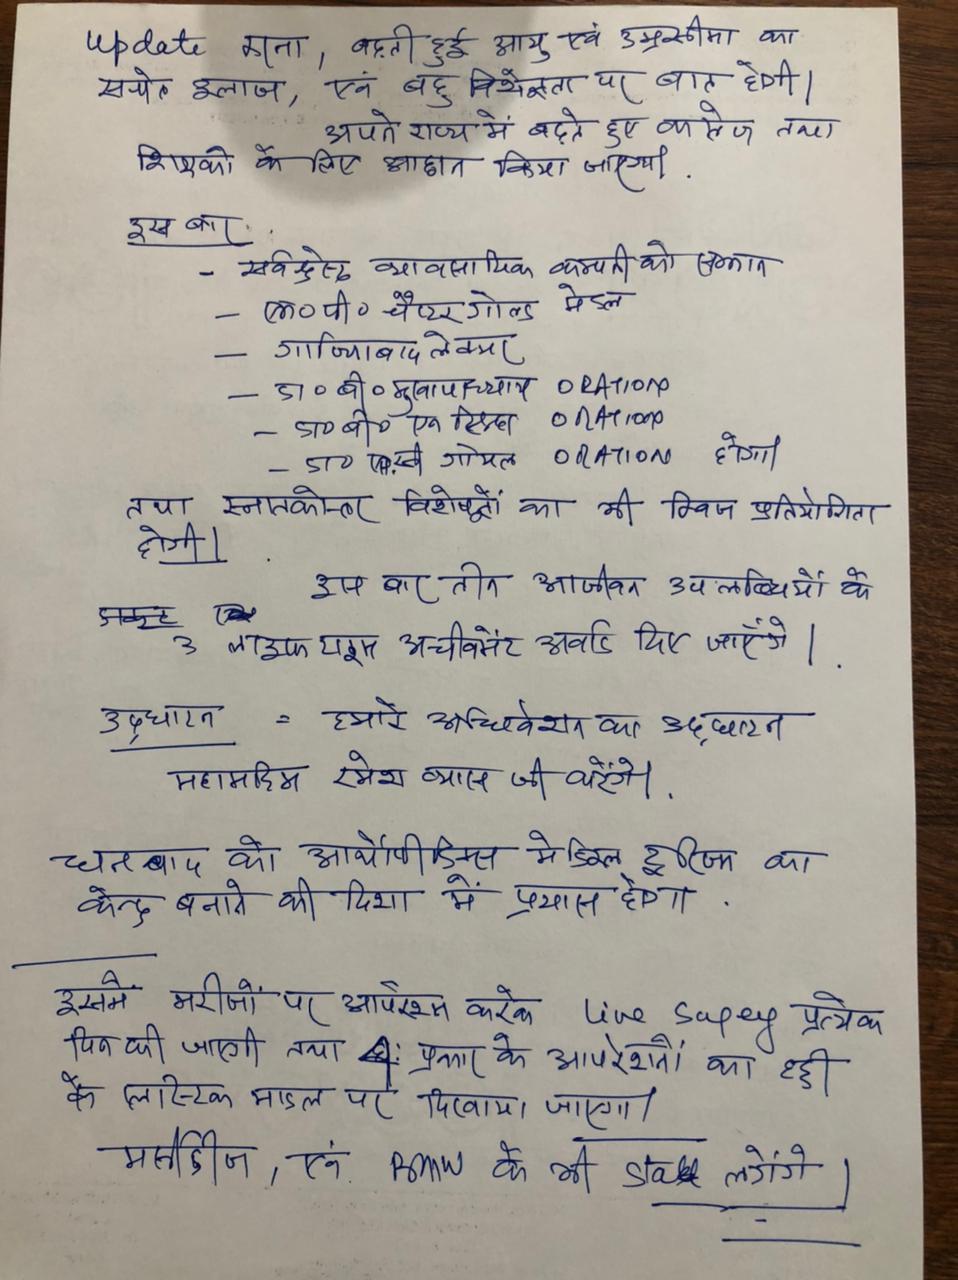 update करना, बढ़ती हुई आयु एवं उम्रसीमा का
सचेत इलाज, एवं बहु विशेषज्ञता पर बात होगी।
अपने राज्य में बढ़ते हुए कालेज तथा
शिक्षकों के लिए आह्वान किया जाएगा.
इस बार.
- सर्वश्रेष्ठ व्यावसायिक कम्पनी को सम्मान
- एम०पी० चैप्टर गोल्ड मेडल
- गाजियाबाद लेक्चर
- डा० बी० मुखोपाध्याय ORATION
- डा० बी० एन सिन्हा ORATION
- डा० गोयल ORATION होगा।
तथा स्नातकोत्तर विशेषज्ञों का भी क्विज प्रतियोगिता
होगी।
इस बार तीन आजीवन उपलब्धियों के
3 लाइफ टाइम अचीवमेंट अवार्ड दिए जाएँगे।
उद्घाटन = हमारे अधिवेशन का उद्घाटन
महामहिम रमेश व्यास जी करेंगे।
धनबाद को आर्थोपीडिक्स मेडिकल टूरिज्म का
केन्द्र बनाने की दिशा में प्रयास होगा.
इसमें मरीजों पर आपरेशन करके live surgery प्रत्येक
दिन की जाएगी तथा छः प्रकार के आपरेशनों का हड्डी
के प्लास्टिक माडल पर दिखाया जाएगा।
मर्सीडीज, एवं BMW के भी stall लगेंगे।